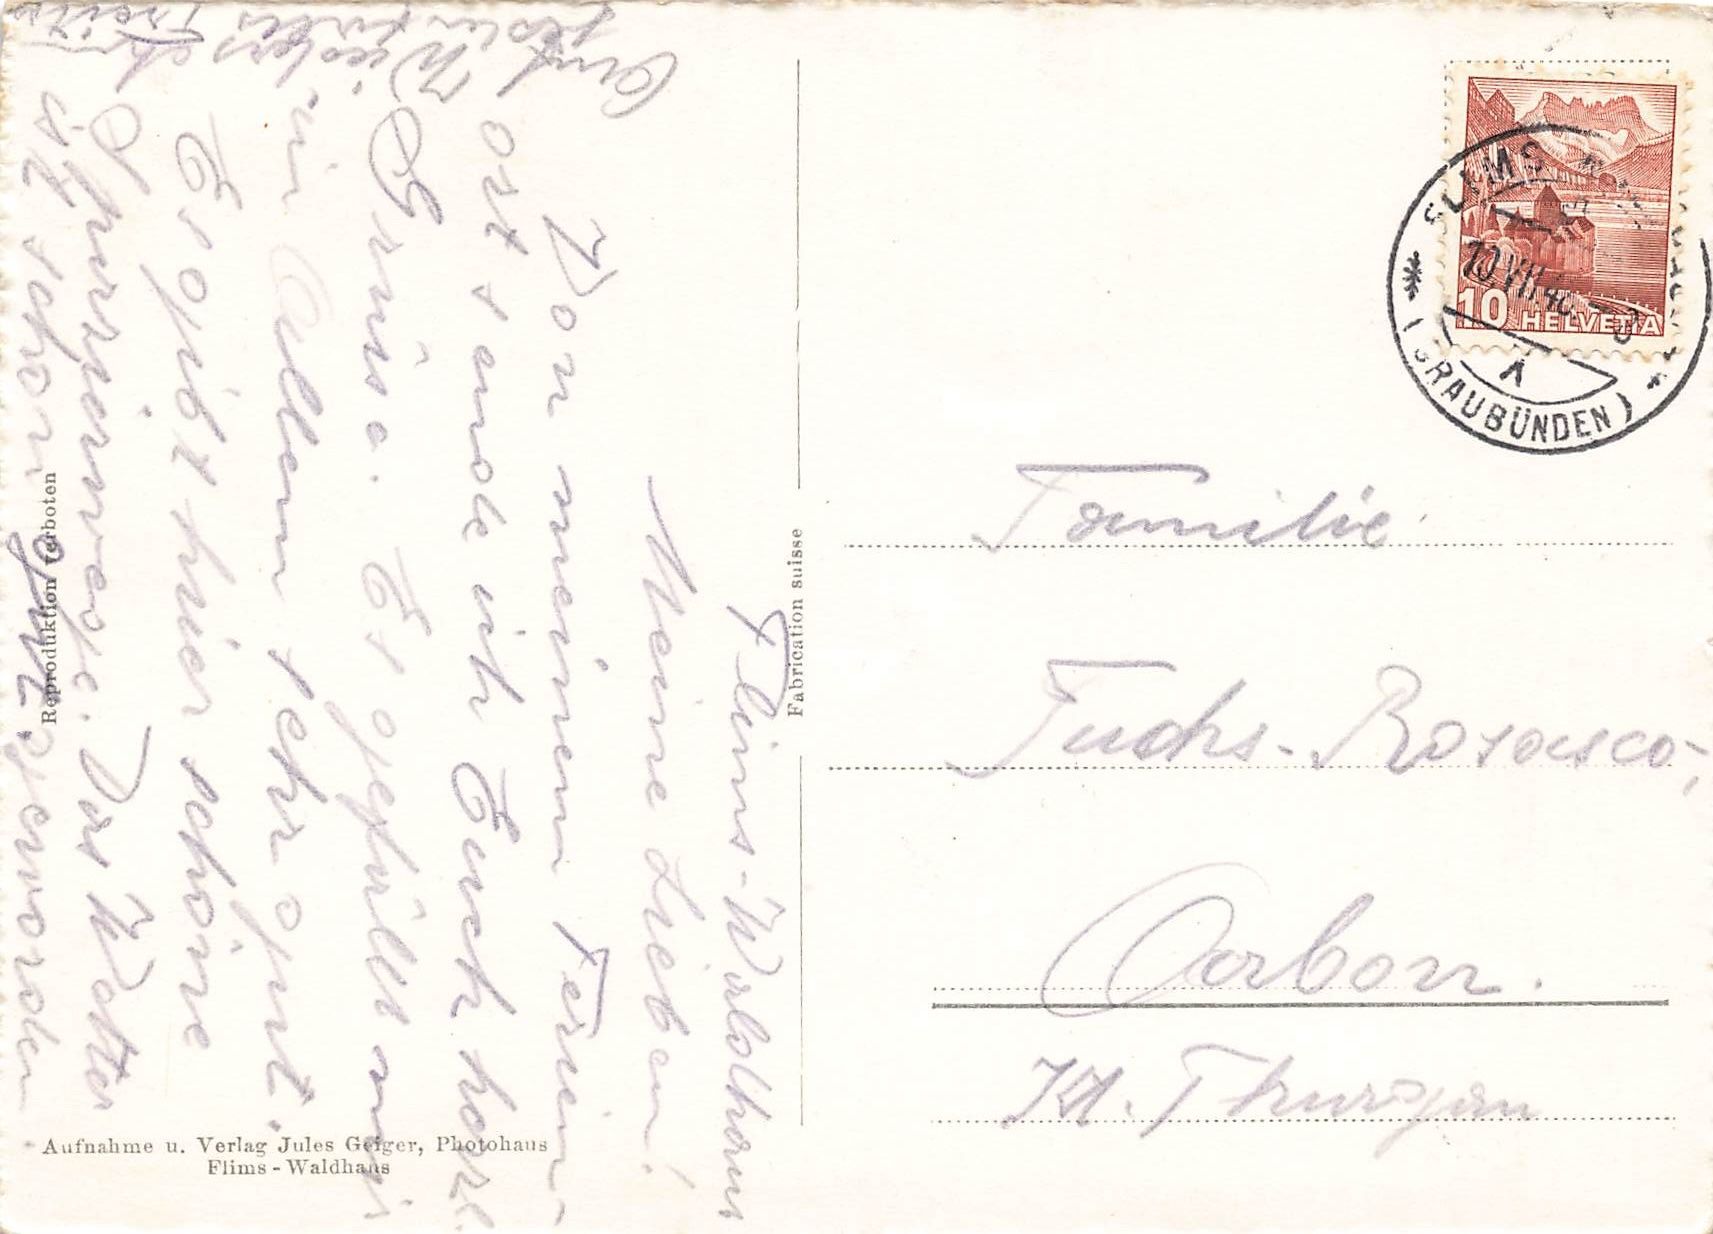 Flims-Waldhaus
Meine Lieben!
Von meinem Ferien-
ort sende ich Euch herzl.
Grüsse. Es gefällt mir
in Allem sehr gut.
Es gibt hier schöne
Spazierwege. Das Wetter
ist schön geworden
gut
Auf
Wiedersehen
Reproduktion verboten
Aufnahme u. Verlag Jules Geiger, Photohaus
Flims - Waldhaus
Fabrication suisse
FLIMS
10 VII 40
(GRAUBÜNDEN)
10 HELVETIA
Familie
Fuchs-Rosasco,
Arbon.
Kt. Thurgau